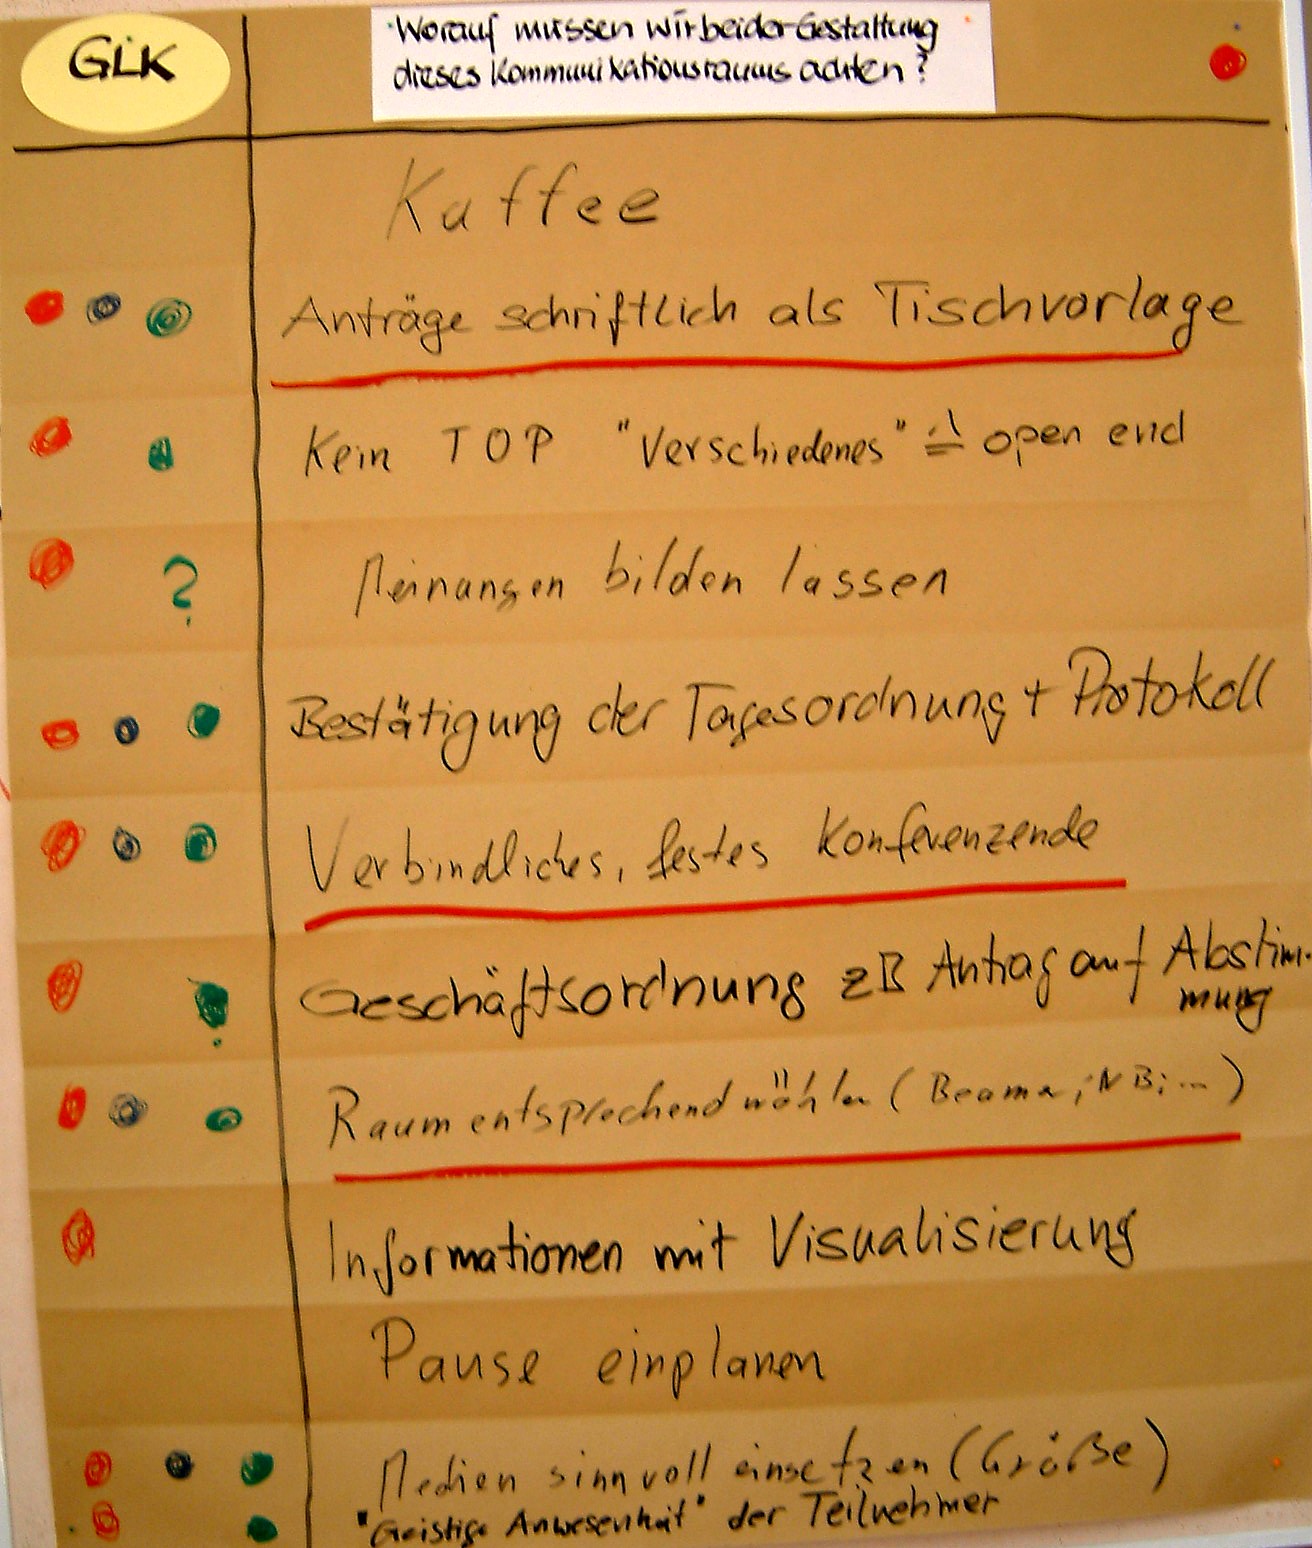 GLK
Worauf müssen wir bei der Gestaltung
dieses Kommunikationsraums achten?
Kaffee
Anträge schriftlich als Tischvorlage
Kein TOP "Verschiedenes" ≙ open end
?
Meinungen bilden lassen
Bestätigung der Tagesordnung + Protokoll
Verbindliches, festes Konferenzende
Geschäftsordnung zB Antrag auf Abstim-
mung
Raum entsprechend wählen (Beamer, NB; ...)
Informationen mit Visualisierung
Pause einplanen
Medien sinnvoll einsetzen (Größe)
"Geistige Anwesenheit" der Teilnehmer